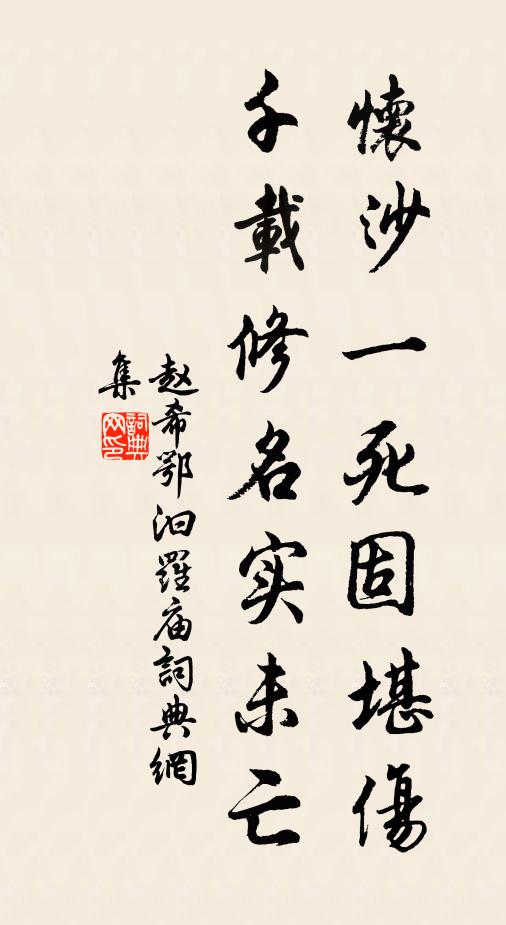 懷沙一死固堪傷
千載修名实未亡
赵希鄂汨羅庙詞典網
集
詞典
网印